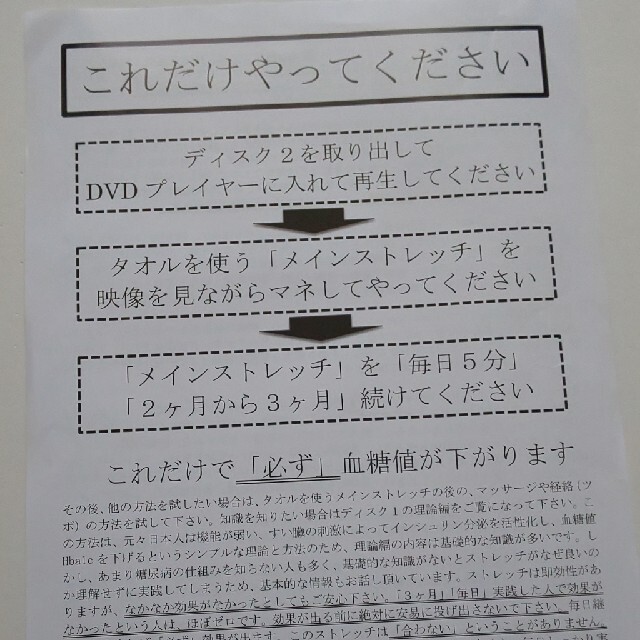 これだけやってください
ディスク２を取り出して
DVD プレイヤーに入れて再生してください
タオルを使う「メインストレッチ」を
映像を見ながらマネしてやってください
「メインストレッチ」を「毎日５分」
「２ヶ月から３ヶ月」続けてください
これだけで「必ず」血糖値が下がります
その後、他の方法を試したい場合は、タオルを使うメインストレッチの後の、マッサージや経絡（ツ
ボ）の方法を試して下さい。知識を知りたい場合はディスク１の理論編をご覧になって下さい。こ
の方法は、元々日本人は機能が弱い、すい臓の刺激によってインシュリン分泌を活性化し、血糖値
Hba1c を下げるというシンプルな理論と方法のため、理論編の内容は基礎的な知識が多いです。し
かし、あまり糖尿病の仕組みを知らない人も多く、基礎的な知識がないとストレッチがなぜ良いの
か理解せずに実践してしまうため、基本的な情報もお話し頂いています。ストレッチは即効性があ
りますが、なかなか効果がなかったとしてもご安心下さい。「３ヶ月」「毎日」実践した人で効果が
なかったという人は、ほぼゼロです。効果が出る前に絶対に安易に投げ出さないで下さい。毎日継
効果が出ます。このストレッチは「合わない」ということがありません。